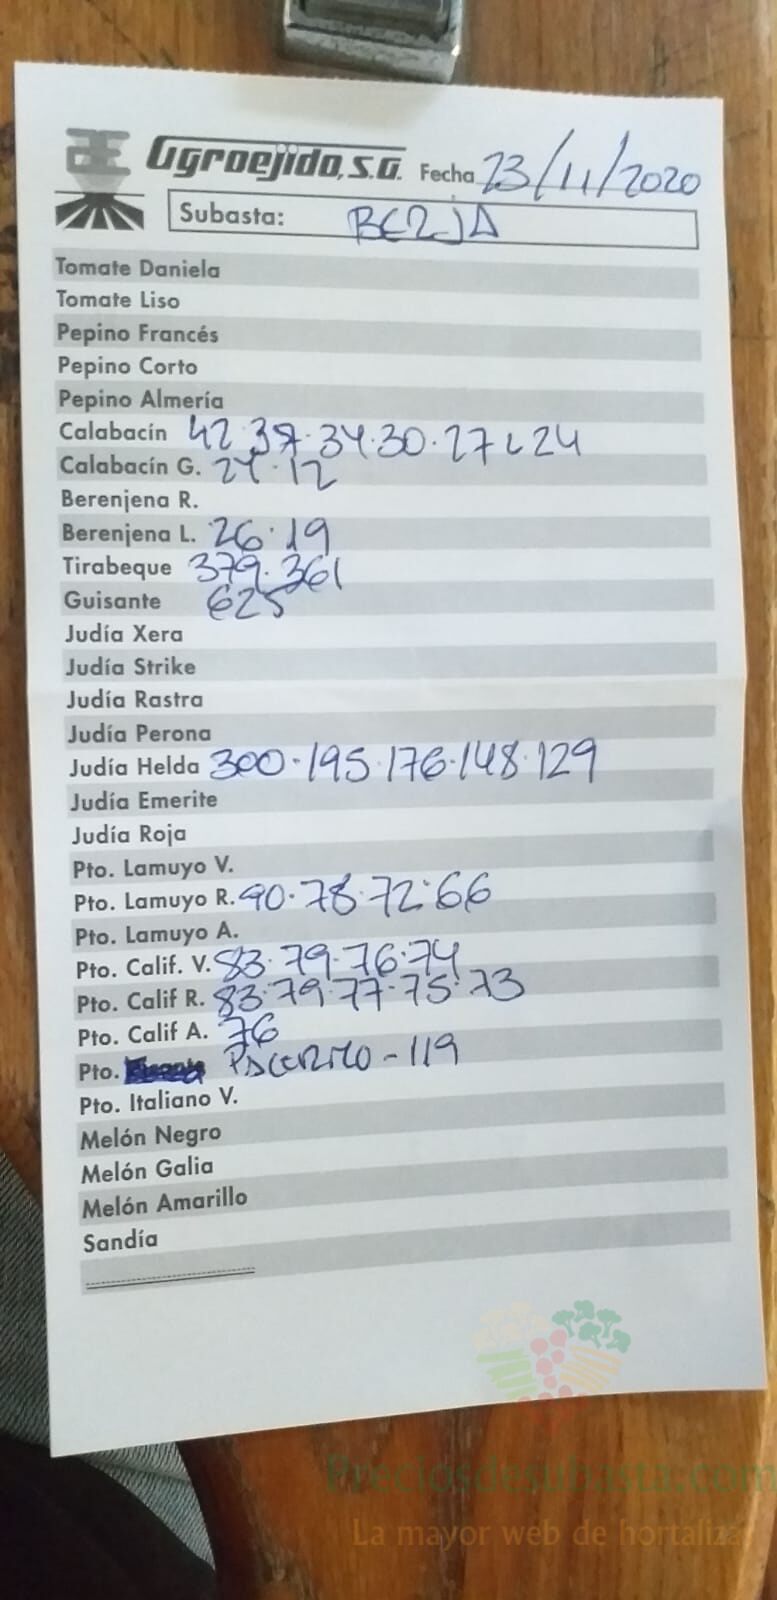 Agroejido, S.A. Fecha 23/11/2020
Subasta: BERJA
Tomate Daniela
Tomate Liso
Pepino Francés
Pepino Corto
Pepino Almería
Calabacín 42·37·34·30·27 L 24
Calabacín G. 24·12
Berenjena R.
Berenjena L. 26·19
Tirabeque 379·361
Guisante 625
Judía Xera
Judía Strike
Judía Rastra
Judía Perona
Judía Helda 300·195·176·148·129
Judía Emerite
Judía Roja
Pto. Lamuyo V.
Pto. Lamuyo R. 90·78·72·66
Pto. Lamuyo A.
Pto. Calif. V. 83·79·76·74
Pto. Calif R. 83·79·77·75·73
Pto. Calif A. 76
Pto. 119
Pto. Italiano V.
Melón Negro
Melón Galia
Melón Amarillo
Sandía
Preciosdesubasta.com
La mayor web de hortalizas